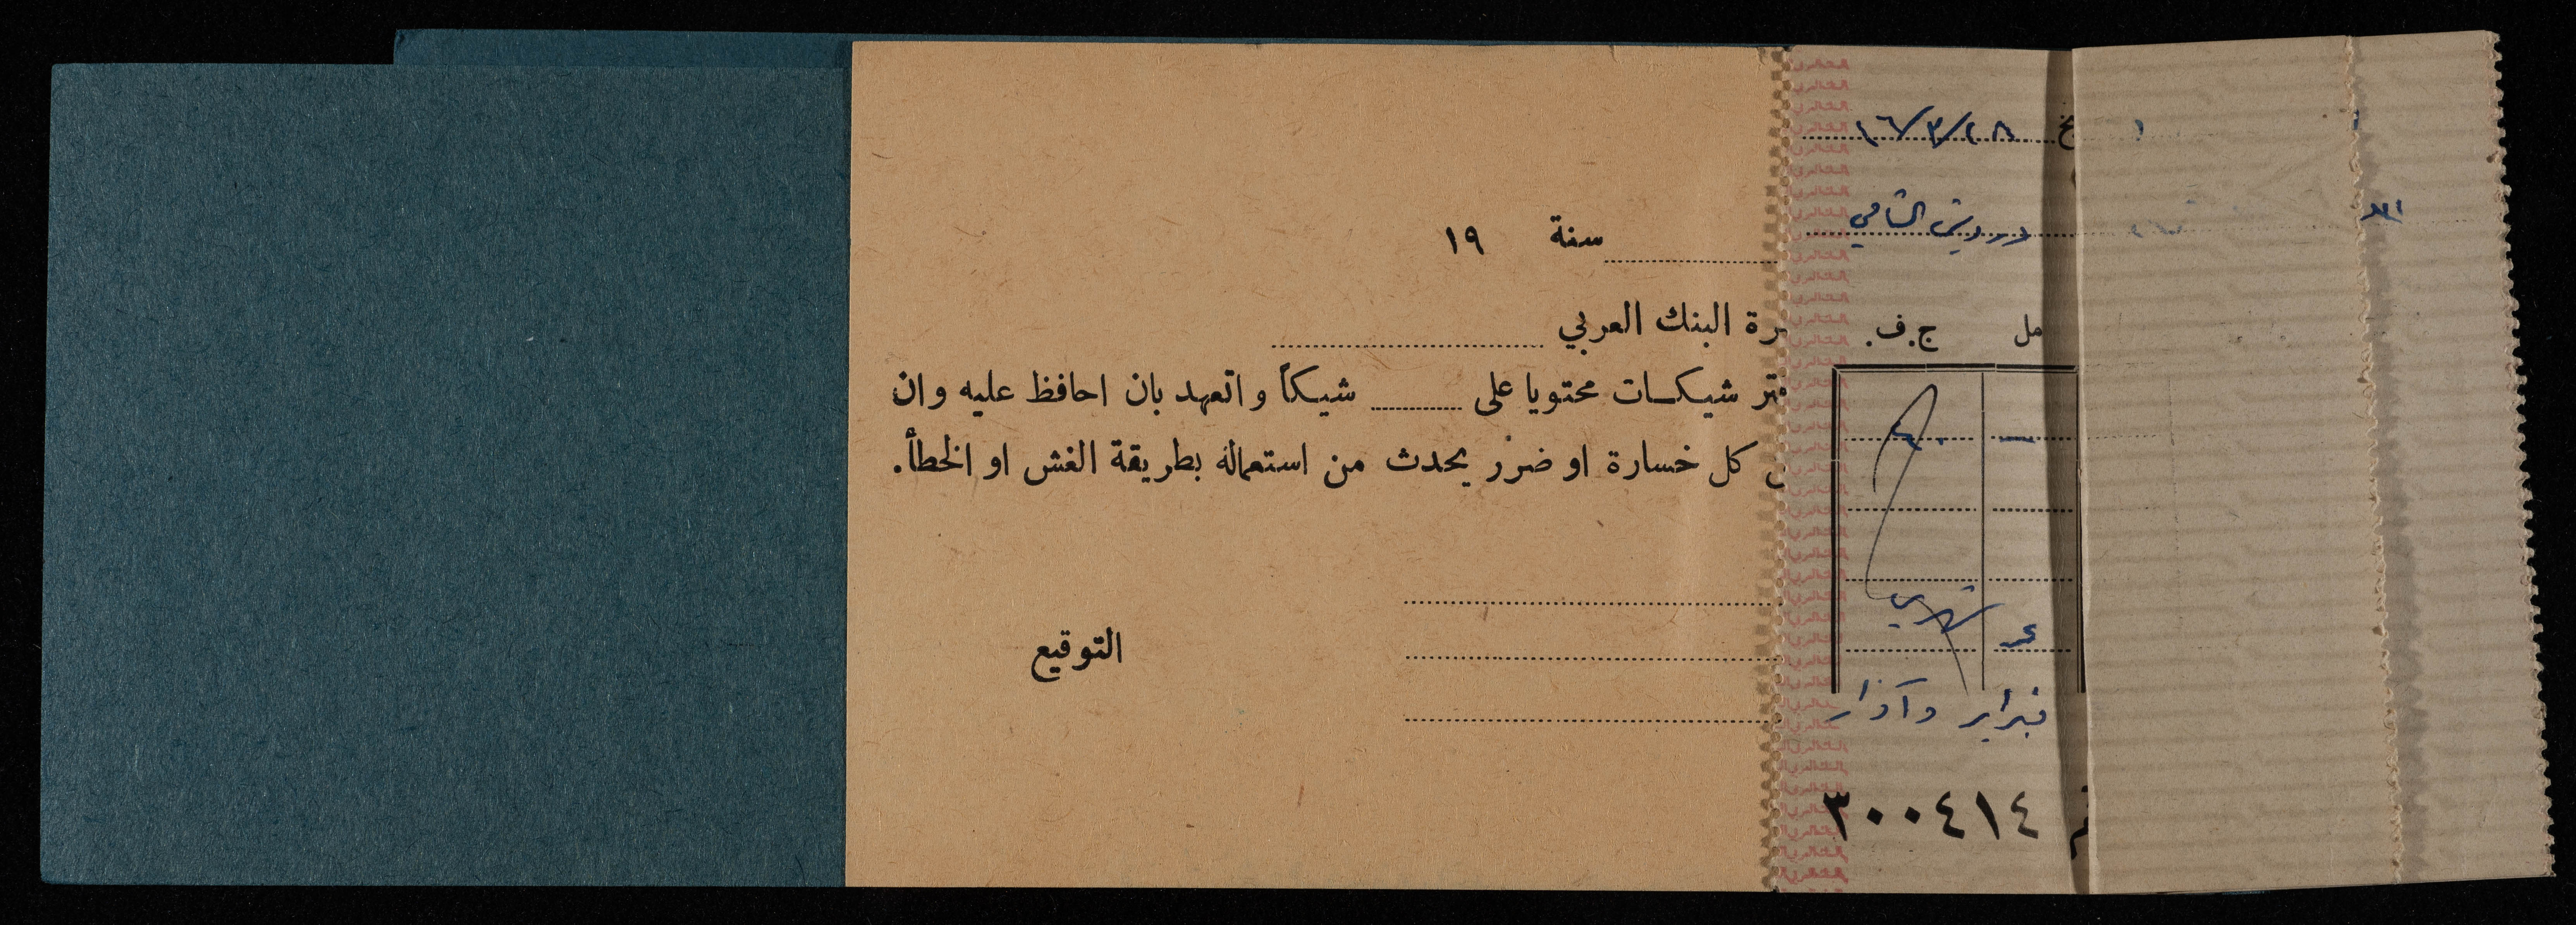 سنة ١٩
رة البنك العربي
تر شيكات محتويا على شيكاً واتعهد بان احافظ عليه وان
كل خسارة او ضرر يحدث من استعماله بطريقة الغش او الخطأ.
التوقيع
درويش الشامي
مل ج. ف.
فبراير وآذار
٣٠٠٤١٤